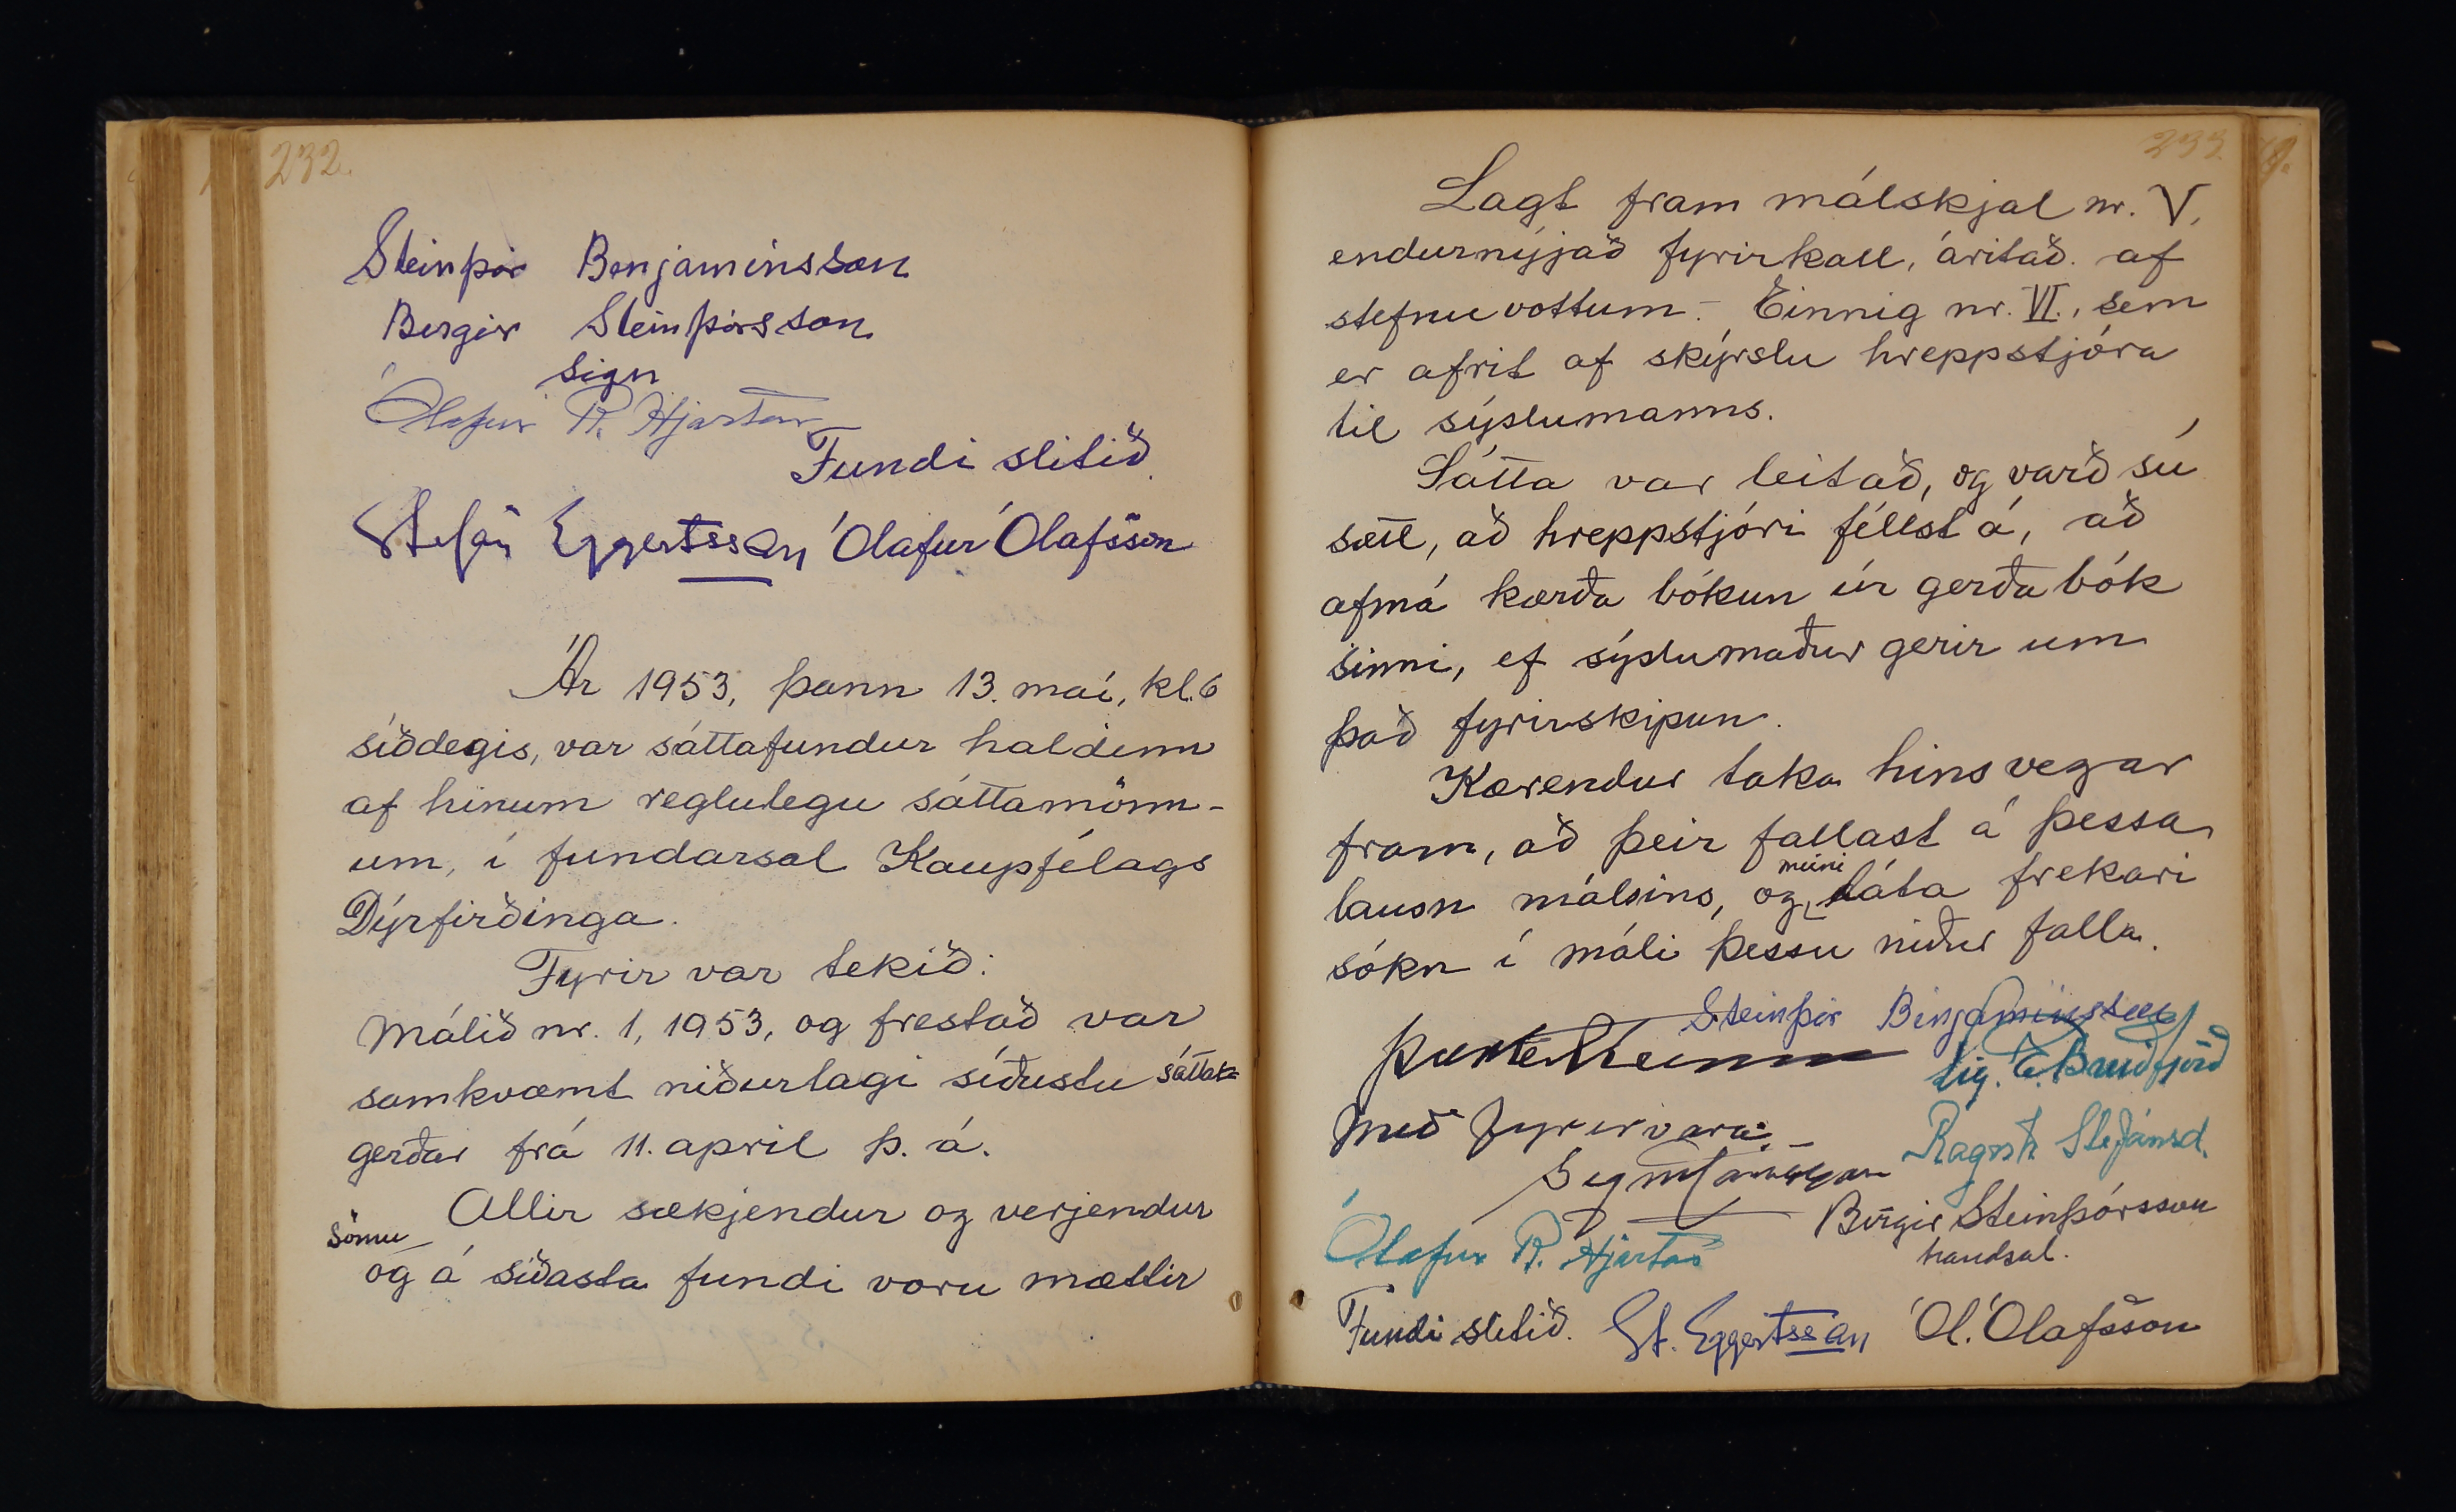 232.
Steinþór Benjamínsson
Bergir Steinþórsson
sign
Ólafur R. Hjartar
Fundi slitið.
Stefán Eggertsson Ólafur Ólafsson
Ár 1953, þann 13. maí, kl. 6
síðdegis, var sáttafundur haldinn
af hinum reglulegu sáttamönn-
um, í fundarsal Kaupfélags
Dýrfirðinga.
Fyrir var tekið:
Málið nr. 1, 1953, og frestað var
samkvæmt niðurlagi síðustu sátta=
gerðar frá 11. apríl þ. á.
Allir sækjendur og verjendur
sömu
og á síðasta fundi voru mættir
233.
Lagt fram málskjal nr. V,
endurnýjað fyrirkall, áritað af
stefnuvottum. - Einnig nr. VI., sem
er afrit af skýrslu hreppstjóra
til sýslumanns.
Sátta var leitað, og varð sú
sætt, að hreppstjóri féllst á, að
afmá kærða bókun úr gerðabók
sinni, ef sýslumaður gerir um
það fyrirskipun.
Kærendur taka hinsvegar
fram, að þeir fallast á þessa
lausn málsins, og muni láta frekari
sókn í máli þessu niður falla.
Steinþór Benjamínsson
E. Breiðfjörð
Með fyrirvara
Ragnh. Stefánsd.
Ólafur R. Hjartar
Birgir Steinþórsson
handsal.
Fundi slitið. St. Eggertsson Ól. Ólafsson